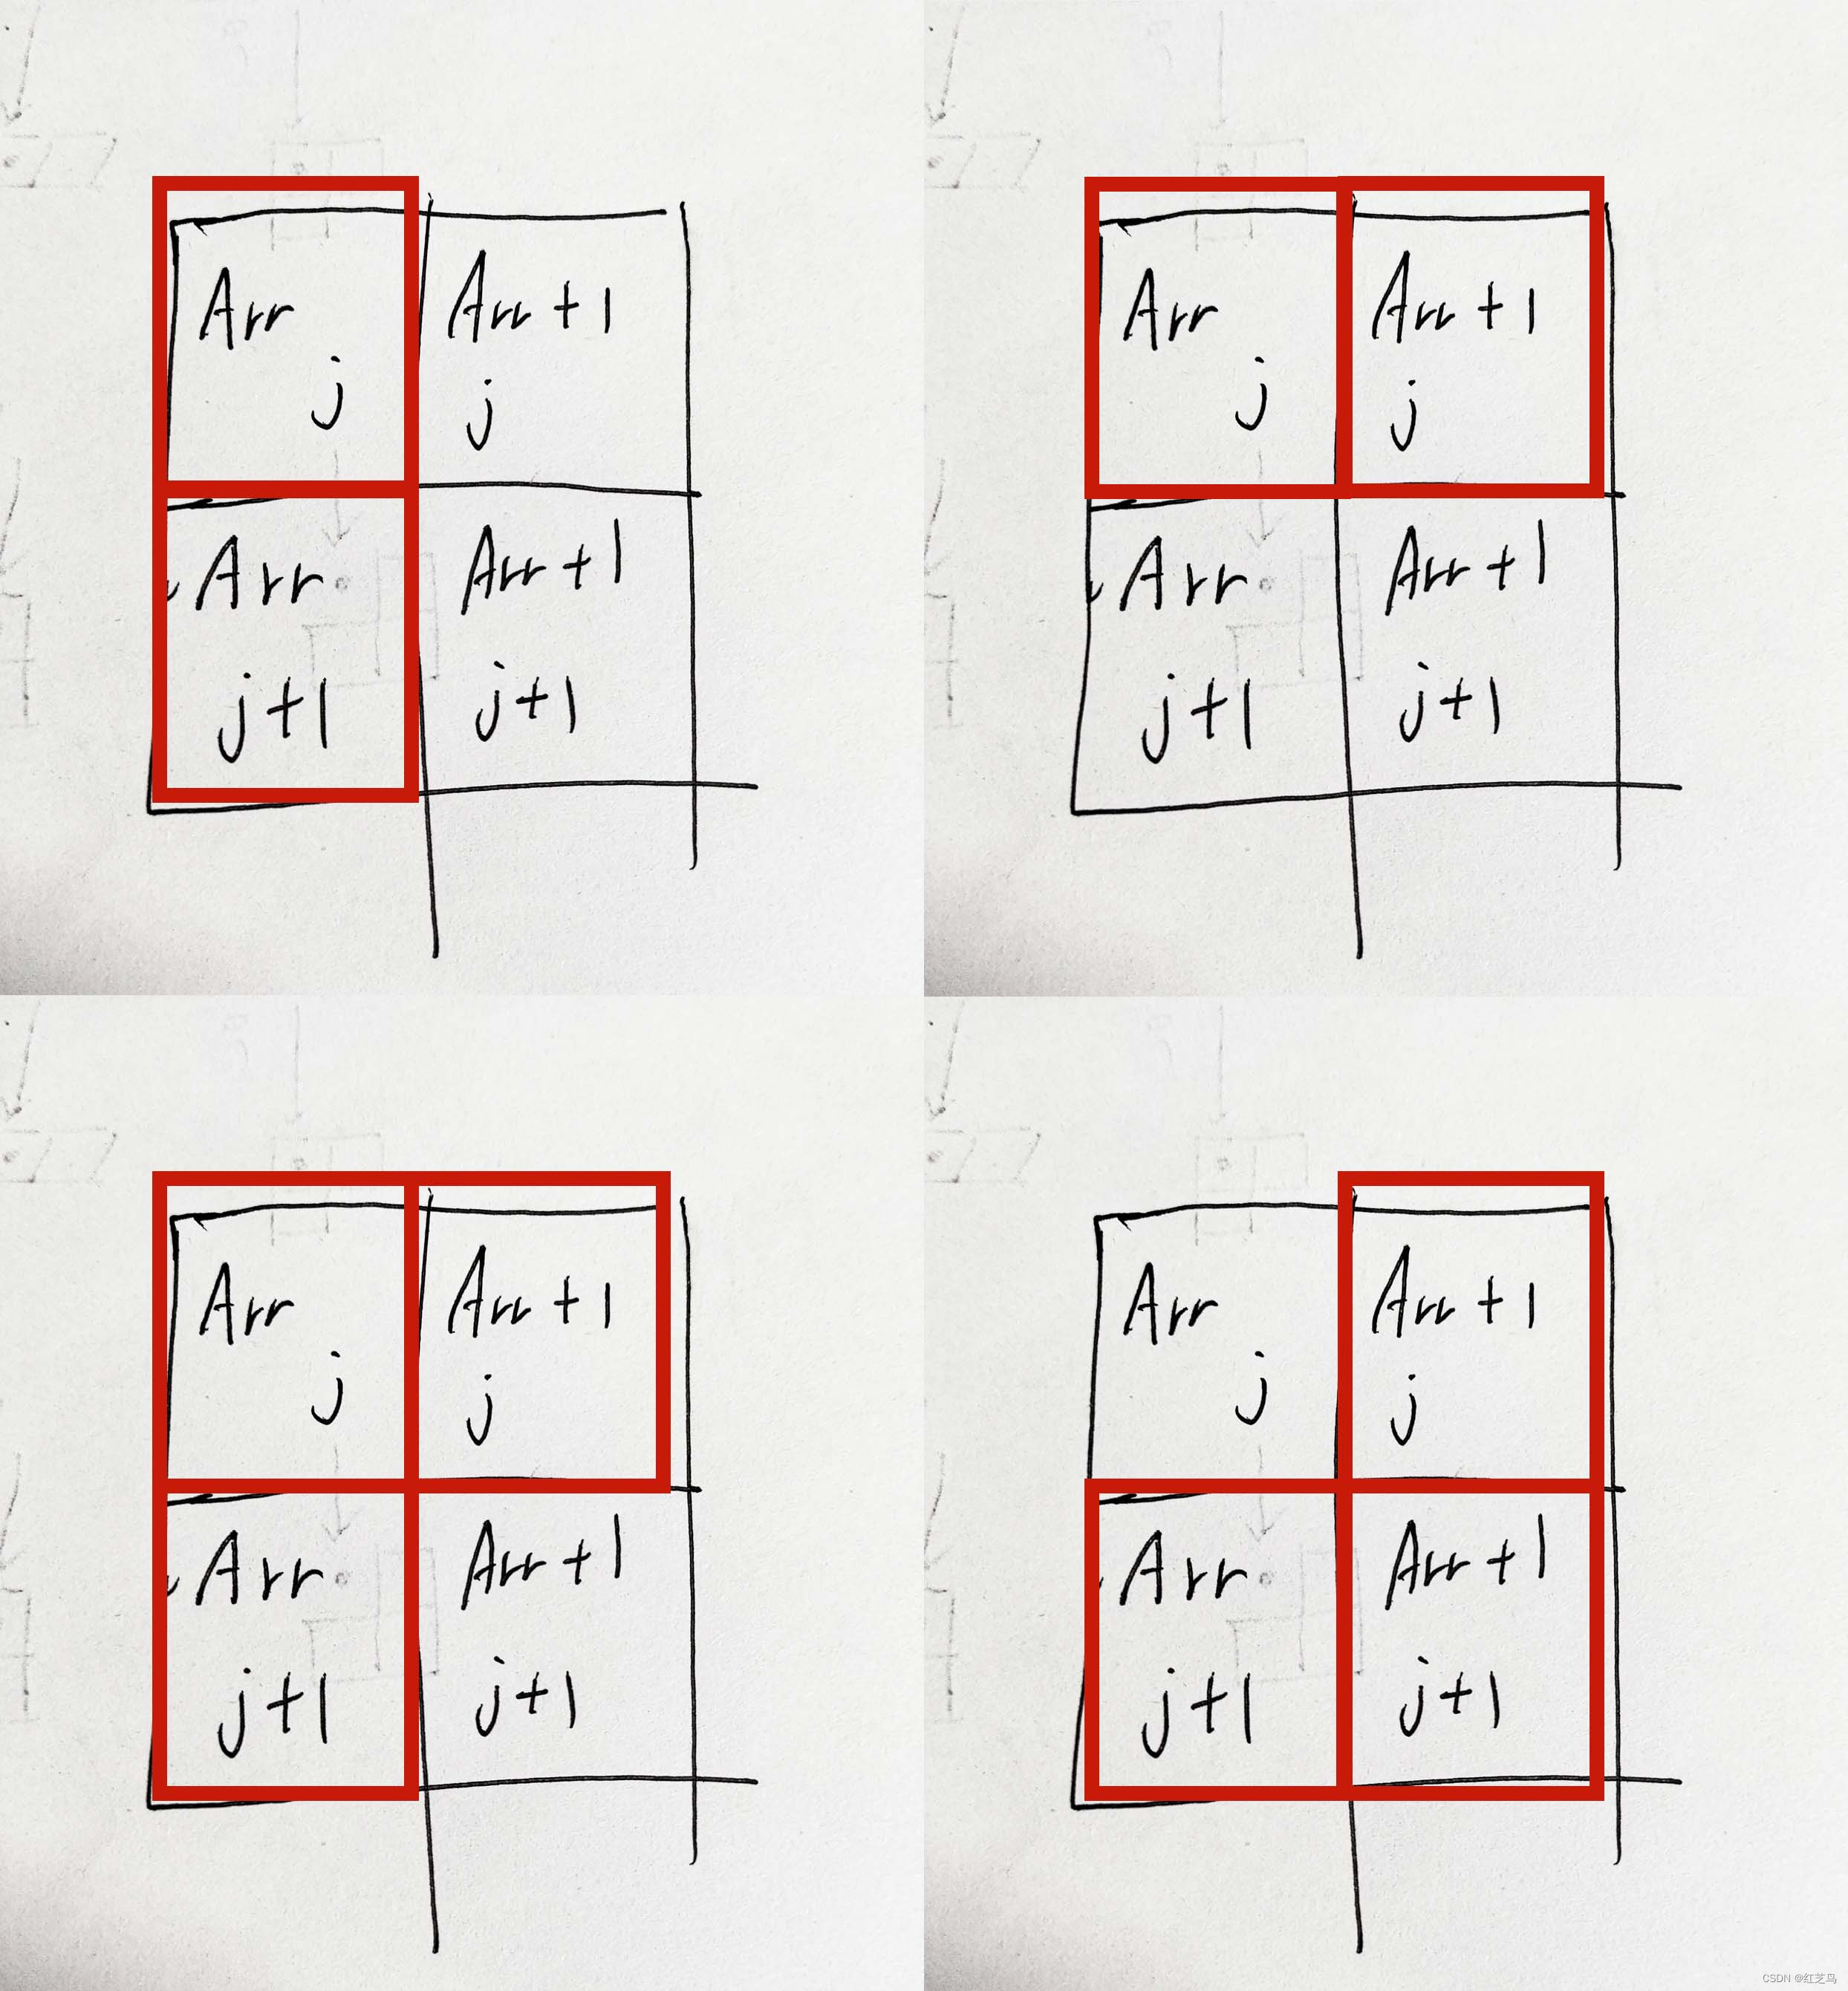 Arr
j
Arr+1
j
Arr
j+1
Arr+1
j+1
Arr
j
Arr+1
j
Arr
j+1
Arr+1
j+1
Arr
j
Arr+1
j
Arr
j+1
Arr+1
j+1
Arr
j
Arr+1
j
Arr
j+1
Arr+1
j+1
CSDN @红芝鸟